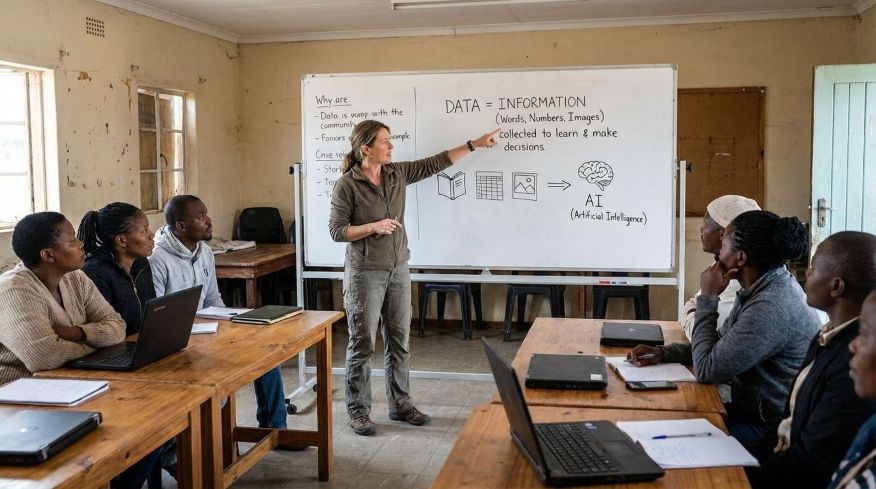 Why are:
- Data is with the
community
-
-
DATA = INFORMATION
(Words, Numbers, Images)
collected to learn & make
decisions.
AI
(Artificial Intelligence)